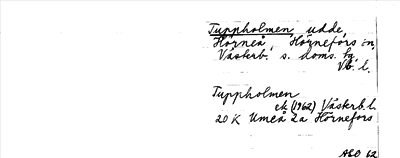 Tuppholmen, udde,
Hörneå, Hörnefors sn,
Västerb. s. doms. hg,
Vb. l.
Tuppholmen
ek (1962) Västerb. l.
20 K Umeå 2a Hörnefors
ABO 62